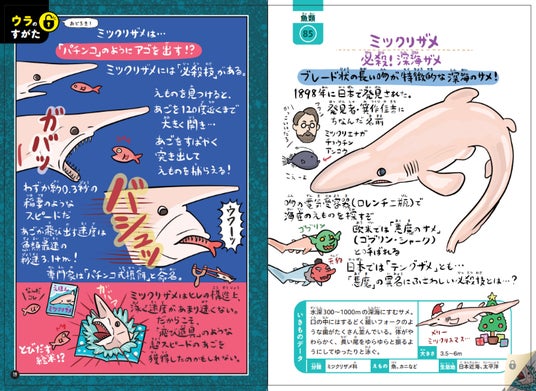 魚類
85
ミツクリザメ
必殺!深海ザメ
ブレード状の長い吻が特徴的な深海のサメ!
1898年に日本で発見された。
発見者・箕作佳吉に
ちなんだ名前
ミツクリエナガ
チョウチン
アンコウ
吻の電気受容器(ロレンチニ瓶)で
海底のえものを探すぞ
ゴブリン
欧米では「悪魔のサメ」
(ゴブリン・シャーク)
とよばれる
天狗
日本では「テングザメ」とも…
「悪魔」の異名にふさわしい必殺技とは…?
いきものデータ
水深300〜1000mの深海にすむサメ。
口の中にはするどく細いフォークのよう
な歯がたくさん並んでいる。体がや
わらかく、長い尾をゆらゆらと振るよ
うにしてゆったりと泳ぐ。
メリー
クリスマス…
大きさ 3.5〜6m
分類 ミツクリザメ科
えもの 魚、カニなど
生息地 日本近海、太平洋
ウラの
すがた
おどろき!
ミツクリザメは…
「パチンコ」のようにアゴを出す!?
ミツクリザメには「必殺技」がある。
えものを見つけると、
あごを120度近くまで
大きく開き…
あごをすばやく
突き出して
えものを捕らえる!
ガバッ
わずか約0.3秒の
稲妻のような
スピードだ
あごが飛び出す速度は
魚類最速の
秒速3.1m!
バシュッ
ウワーッ
専門家は「パチンコ式捕食」と命名。
なんだ
コレ
とびだす
絵本!?
ミツクリザメは
ミツクリザメはヒレの構造上、
泳ぐ速度があまり速くない。
だからこそ
「飛び道具」のような
超スピードのあごを
獲得したのかもしれない。